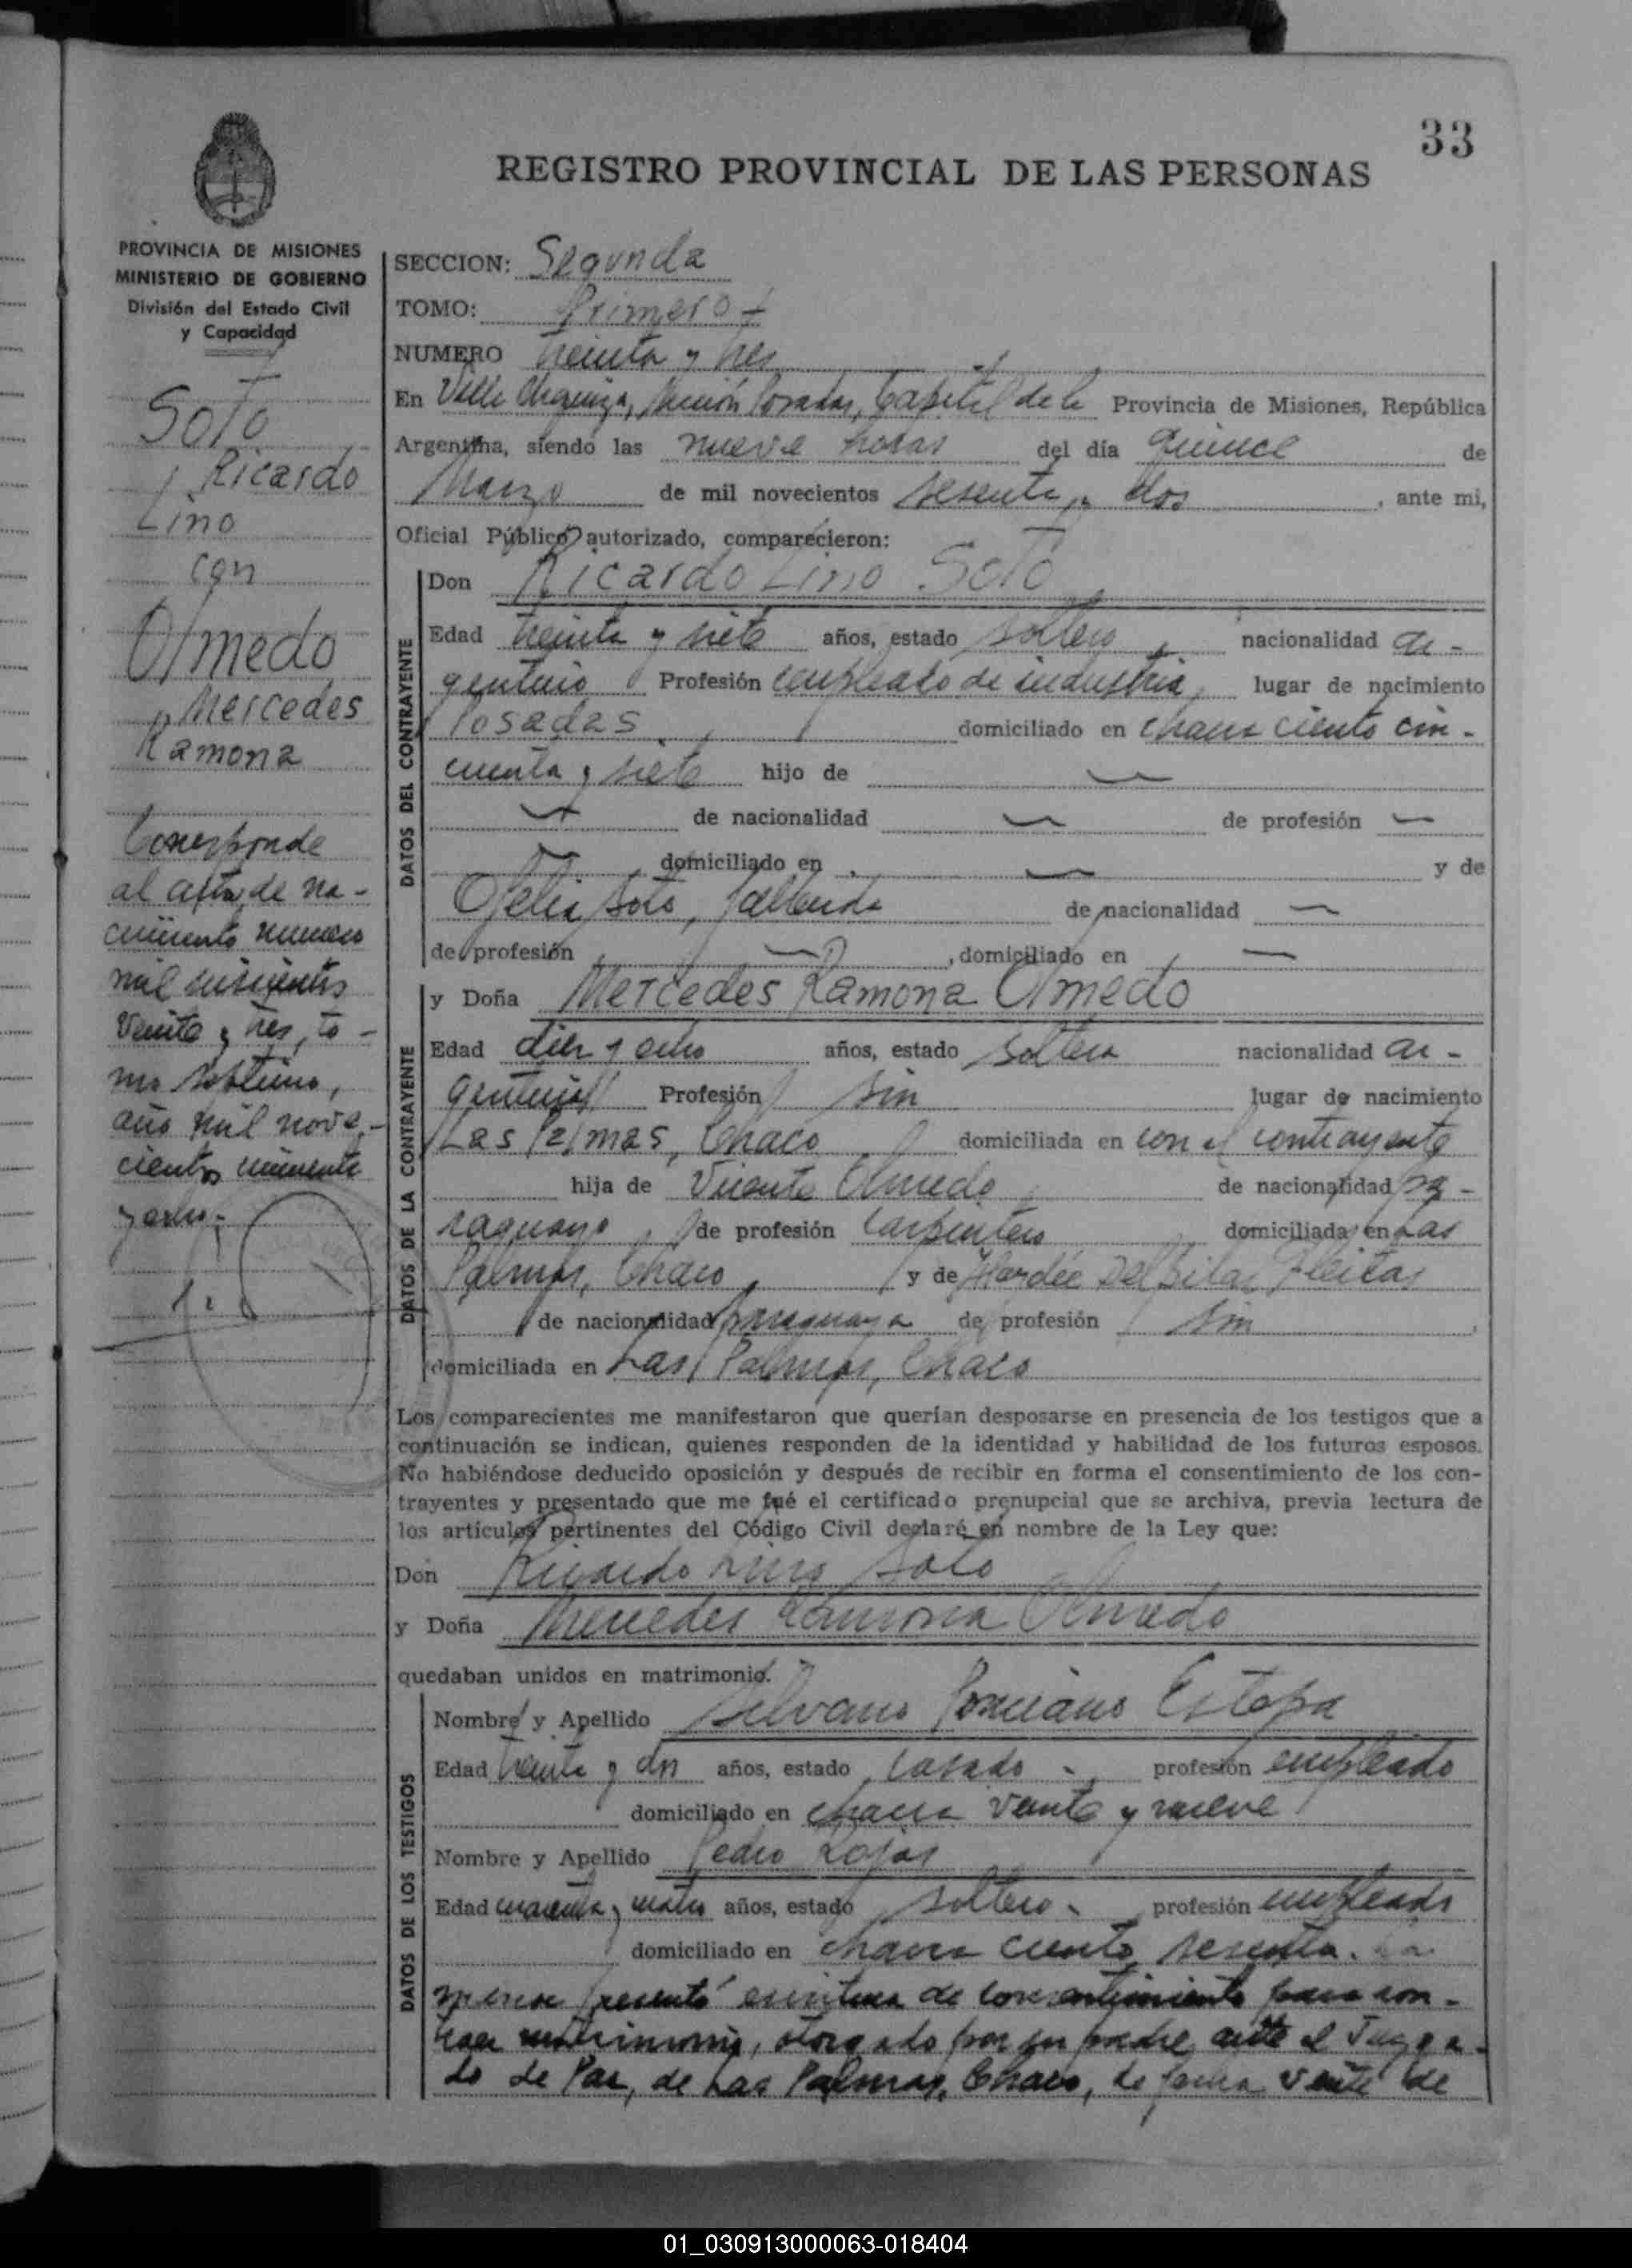 33
REGISTRO PROVINCIAL DE LAS PERSONAS
PROVINCIA DE MISIONES
MINISTERIO DE GOBIERNO
División del Estado Civil
y Capacidad
SOTO
Ricardo
Lino
con
Olmedo
Mercedes
Ramona
Corresponde
al acta de na-
cimiento numero
mil
veinte y tres, to-
mo septimo,
año mil nove-
cientos cincuenta
y ocho.
SECCION: Segunda
TOMO: Primero
NUMERO treinta y tres
En Villa Urquiza, Sección Posadas, Capital de la Provincia de Misiones, República
Argentina, siendo las nueve horas del día quince de
Marzo de mil novecientos sesenta y dos, ante mi,
Oficial Público autorizado, comparecieron:
DATOS DEL CONTRAYENTE
Don Ricardo Lino SOTO
Edad treinta y siete años, estado soltero, nacionalidad ar-
gentino Profesión empleado de industria, lugar de nacimiento
Posadas, domiciliado en chacra ciento cin-
cuenta y siete hijo de —
— de nacionalidad — de profesión —
— domiciliado en — y de
Ofelia Soto, fallecida de nacionalidad —
de profesión —, domiciliado en —
DATOS DE LA CONTRAYENTE
y Doña Mercedes Ramona Olmedo
Edad diez y ocho años, estado soltera nacionalidad ar-
gentina Profesión sin lugar de nacimiento
Las Palmas, Chaco domiciliada en con el contrayente
hija de Vicente Olmedo de nacionalidad pa-
raguayo, de profesión carpintero domiciliada en Las
Palmas, Chaco, y de Hardée Del Pilar Fleitas
de nacionalidad paraguaya de profesión sin
domiciliada en Las Palmas, Chaco
Los comparecientes me manifestaron que querían desposarse en presencia de los testigos que a
continuación se indican, quienes responden de la identidad y habilidad de los futuros esposos.
No habiéndose deducido oposición y después de recibir en forma el consentimiento de los con-
trayentes y presentado que me fué el certificado prenupcial que se archiva, previa lectura de
los artículos pertinentes del Código Civil declaré en nombre de la Ley que:
Don Ricardo Lino Soto
y Doña Mercedes Ramona Olmedo
quedaban unidos en matrimonio.
DATOS DE LOS TESTIGOS
Nombre y Apellido Silvano Ponciano Estepa
Edad treinta y dos años, estado casado - profesión empleado
domiciliado en chacra veinte y nueve
Nombre y Apellido Pedro Rojas
Edad cuarenta y cuatro años, estado soltero - profesión empleado
domiciliado en chacra ciento sesenta. La
menor presentó escritura de consentimiento para con-
traer matrimonio, otorgado por su padre ante el Juzga-
do de Paz, de Las Palmas, Chaco, de fecha veinte de
01_030913000063-018404